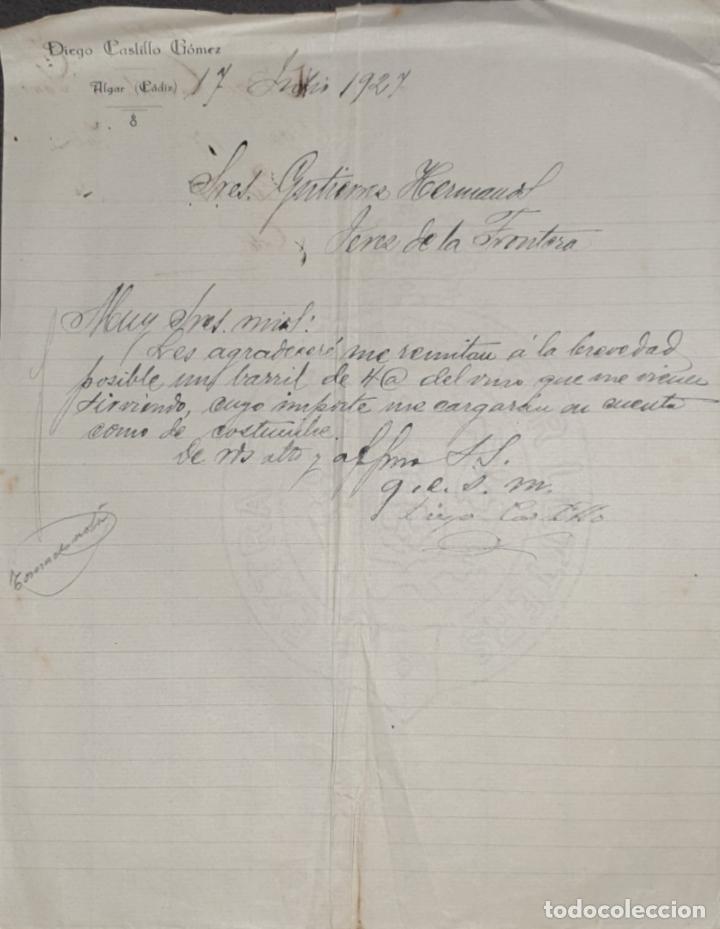 Diego Castillo Gómez
Algar (Cádiz)
8
17 Julio 1927
Sres. Gutierrez Hermanos
Jerez de la Frontera
Muy Sres. mios:
Les agradeceré me remitan á la brevedad
posible un barril de 4@ del vino que me vienen
sirviendo, cuyo importe me cargarán en cuenta
como de costumbre.
De Vds atto y affmo S.S.
q.e.s.m.
Diego Castillo
todocoleccion.net